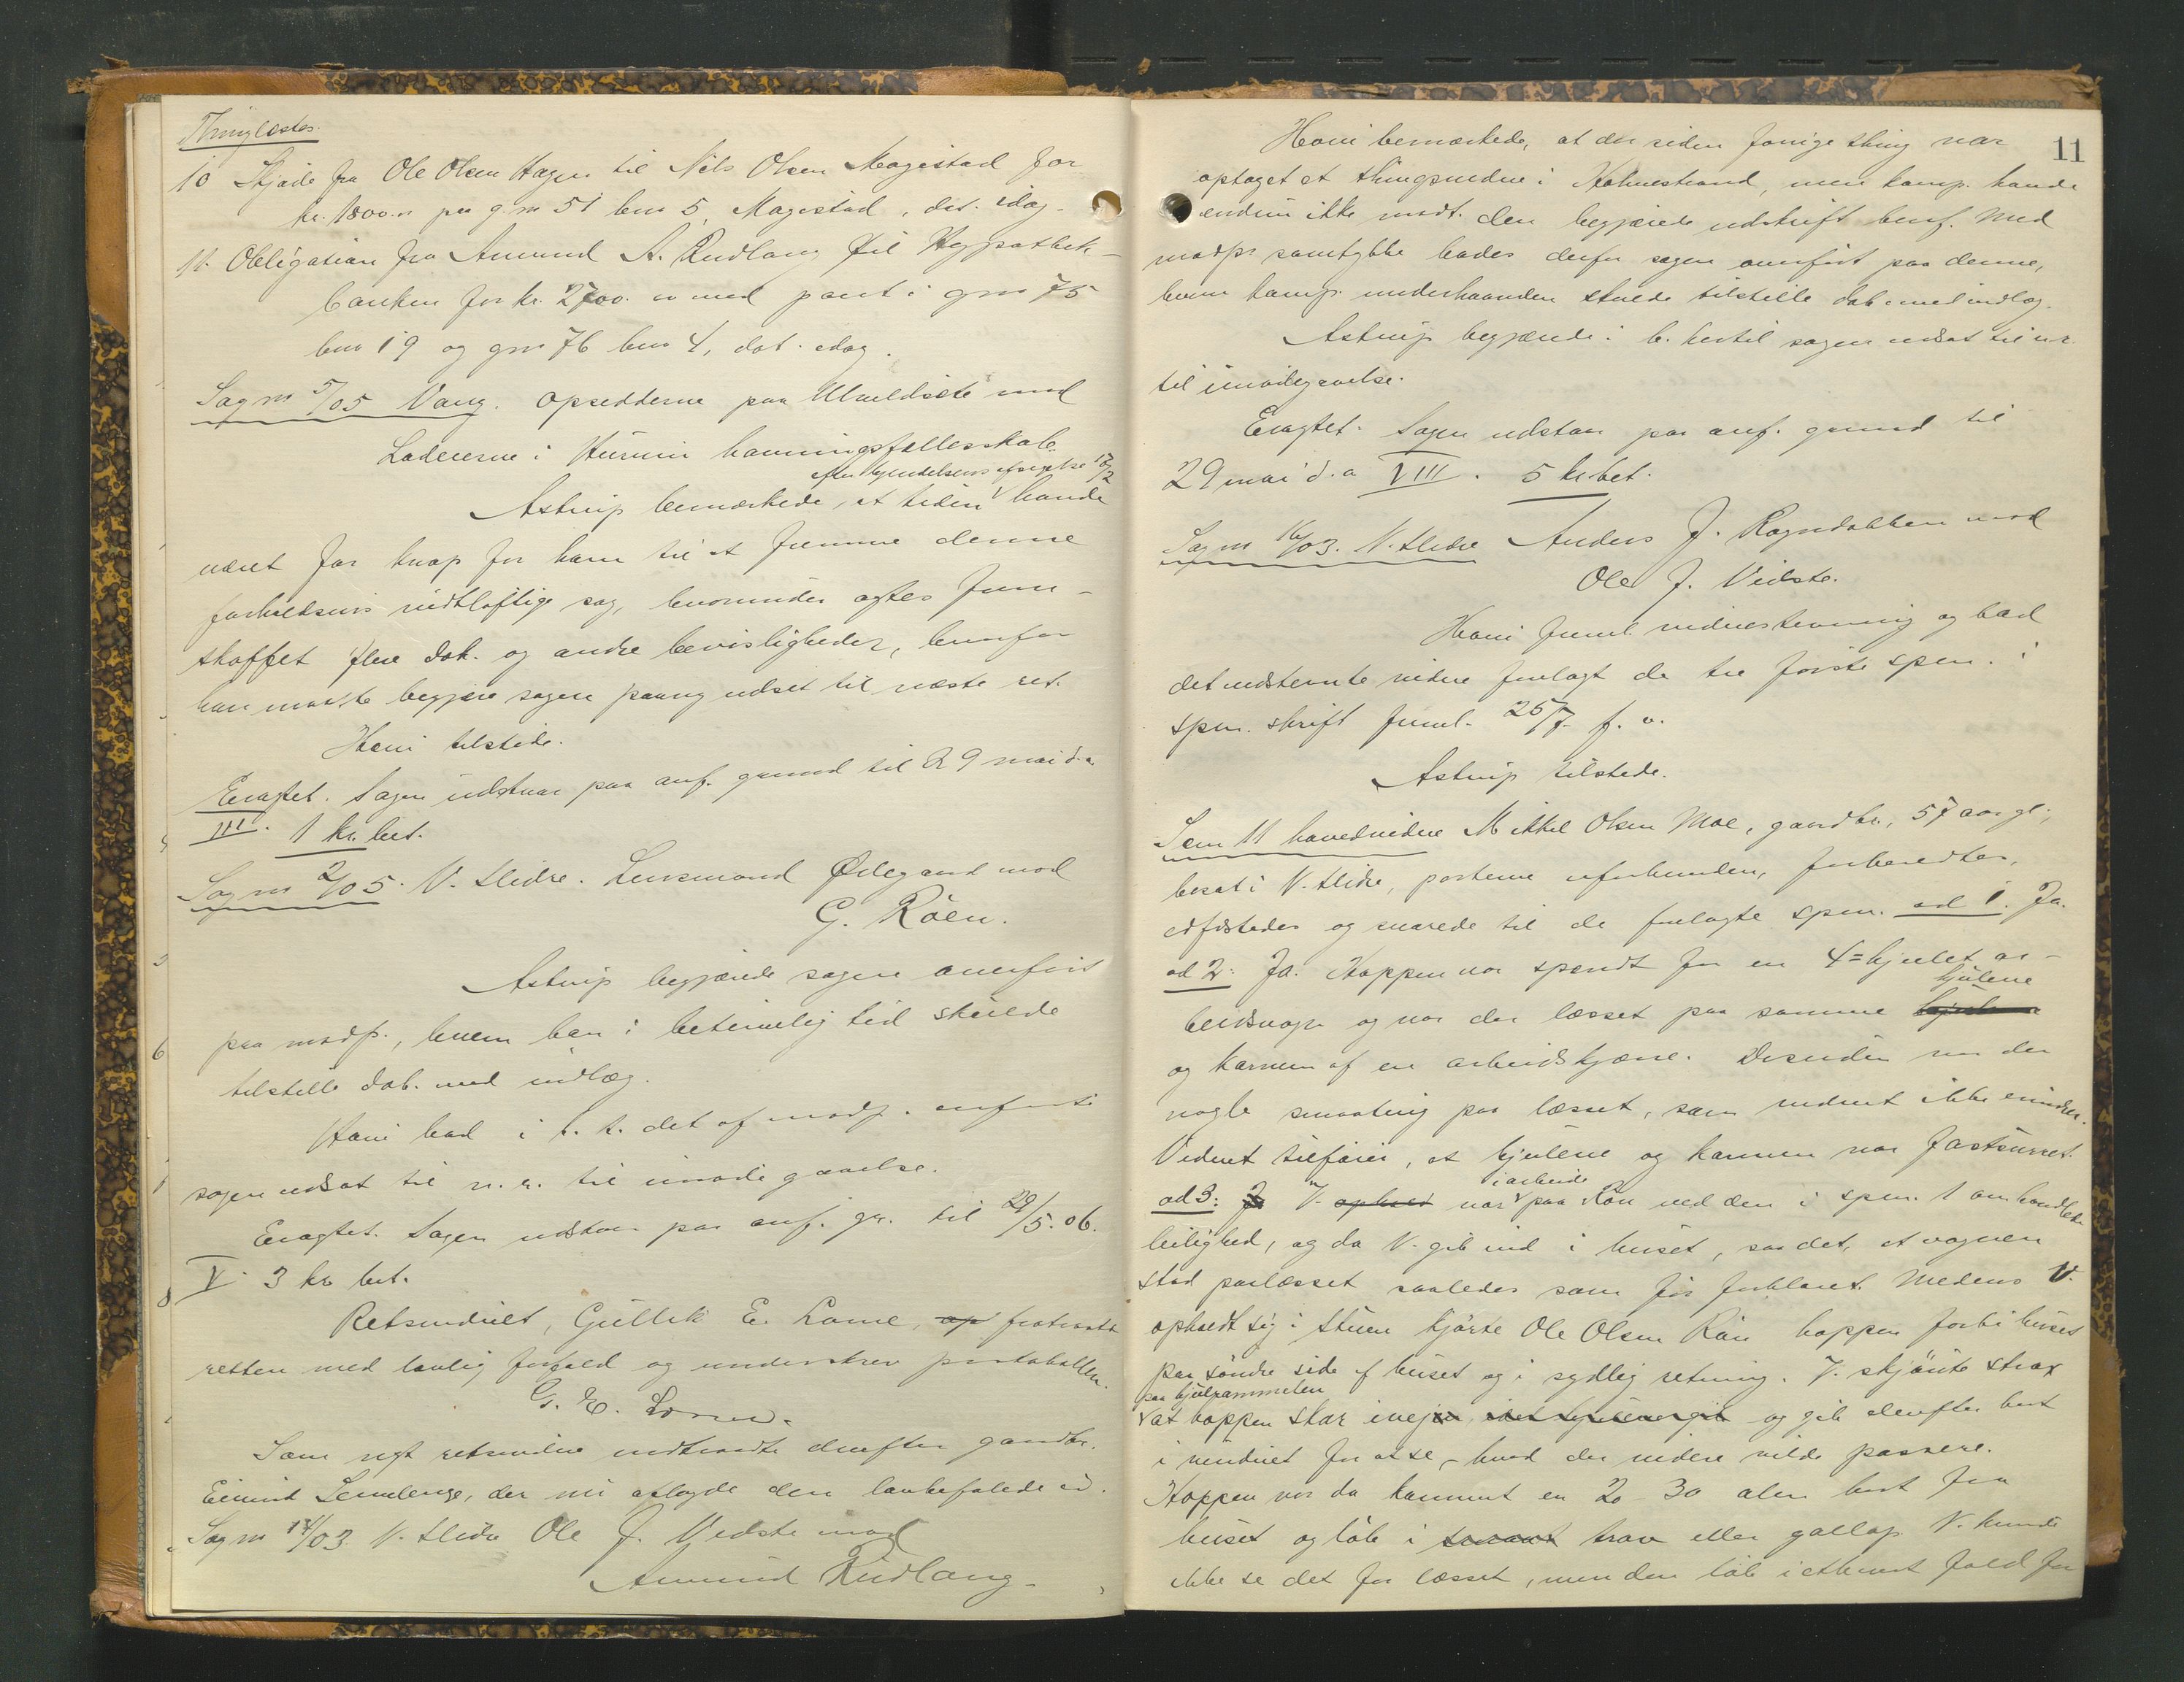 Thinglæstes.
10 Skjøde fra Ole Olsen Hagen til Nils Olsen Magistad for
kr. 1800.00 paa g.no 51 bno 5, Magistad, dat. idag.
11. Obligation fra Amund A. Rudlang til Hypothek-
banken for kr. 2700.00 med pant i gno 75
bno 19 og gno 76 bno 4, dat. idag.
Sag no 5/05 Vang. Opsidderne paa Ulveldsete mod
Lodeierne i Hurum havningsfællesskab.
efter kjendelsens afsigelse 17/2
Astrup bemærkede, at tiden havde
været for knap for ham til at fremme denne
forholdsvis vidtløftige sag, hvorunder agtes frem-
skaffet flere dok. og andre bevisligheder, hvorfor
han maatte begjære sagen paany udsat til næste ret.
Hovi tilstede.
Eragtet. Sagen udstaar paa anf. grund til 29 mai d.a.
III. 1 kr. bet.
Sag no 2/05. V. Slidre. Lensmand Ødegaard mod
G. Röen.
Astrup begjærede sagen overført
paa modp., hvem han i betimelig tid skulde
tilstille dok. med indlæg.
Hovi bad i h. t. det af modp. anførte
sagen udsat til n. r. til imødegaaelse.
Eragtet. Sagen udstaar paa anf. gr. til 29/5.06.
V. 3 kr. bet.
Retsvidnet, Gullik E. Lome, op fratraadte
retten med lovlig forfald og underskrev protokollen.
G. E. Lome.
Som nyt retsvidne indtraadte derefter gaardbr.
Eivind Semeleng, der nu aflagde den lovbefalede ed.
Sag no 14/03 V. Slidre Ole J. Vedste mod
Amund Rudlang.
11
Hovi bemærkede, at der siden forrige thing var
optaget et thingsvidne i Holmestrand, men komp. havde
endnu ikke modt. den begjærede udskrift heraf. Med
modps samtykke bades derfor sagen overført paa denne,
hvem komp. underhaanden skulde tilstille dok. med indlæg.
Astrup begjærede i h. hertil sagen udsat til n.r.
til imødegaaelse.
Eragtet. Sagen udstaar paa anf. grund til
29 mai d.a VIII. 5 kr. bet.
Sag no 16/03. V. Slidre Anders J. Rogndokken mod
Ole J. Vedste.
Hovi freml. vidnestevning og bad
det indstevnte vidne forelagt de tre første spm. i
spm. skrift freml. 25/7 f. a.
Astrup tilstede.
Som 11 hovedvidne Mikkel Olsen Moe, gaardbr., 57 aar gl.,
bosat i V. Slidre, parterne uforbunden, forberedtes,
edfæstedes og svarede til de forelagte spm. ad 1. Ja.
ad 2: Ja. Hoppen var spændt for en 4=hjulet ar-
hjulene
beidsvogn og var der læsset paa samme
og karmen af en arbeidskjærre. Desuden var der
nogle smaating paa læsset, som vidnet ikke erindrer.
Vidnet tilføier, at hjulene og karmen var fastsurret.
i arbeide
ad 3: V. ophold var paa Røn ved den i spm. 1 omhandlede
leilighed, og da V. gik ind i huset, saa det, at vognen
stod paalæsset saaledes som før forklaret. Medens V.
opholdt sig i stuen kjørte Ole Olsen Røn hoppen forbi huset
paa søndre side af huset og i sydlig retning. V. skjønte strax
paa hjulrammelen
at hoppen skar ivei og gik derefter bort
i vinduet for at se, hvad der videre vilde passere.
Hoppen var da kommet en 20 30 alen bort fra
huset og løb i travt trav eller gallop. V. kunde
ikke se det for læsset, men den løb i ethvert fald for